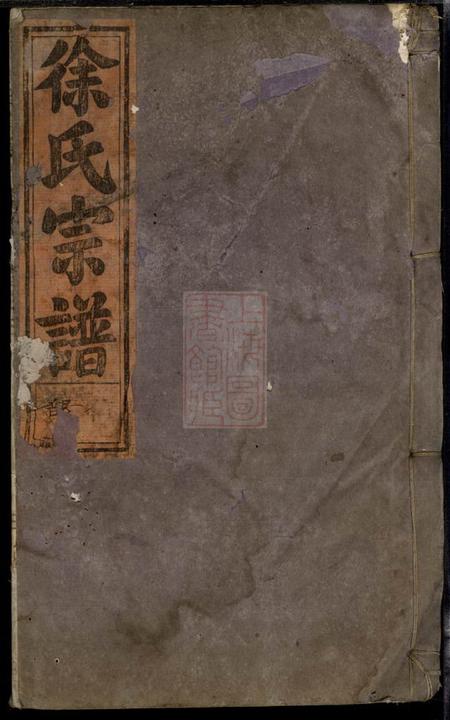 徐氏宗譜
上海圖
書館藏